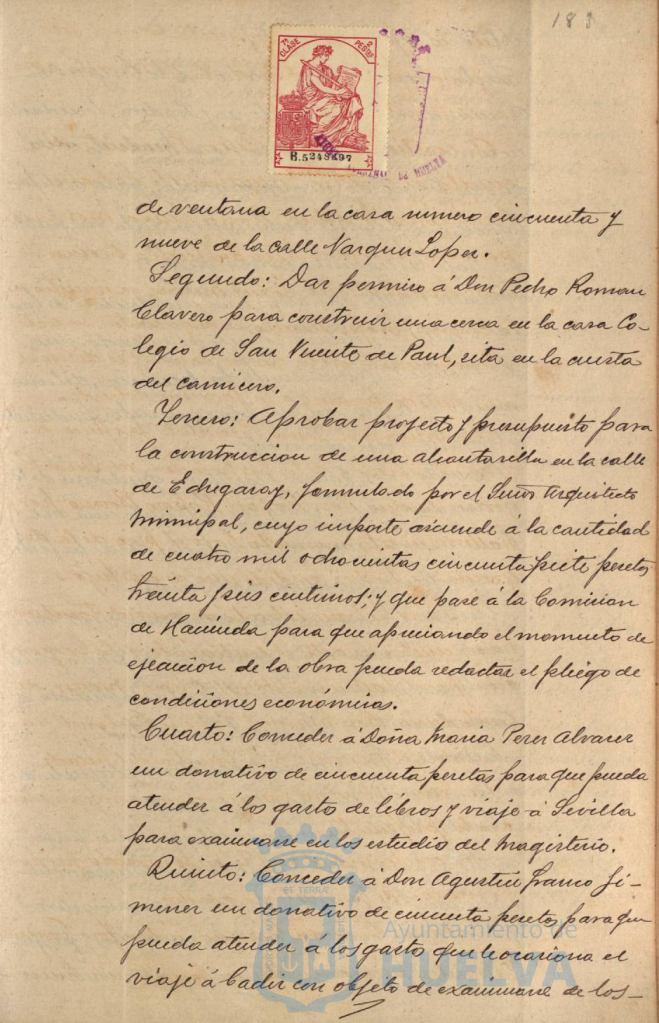 183
7ª CLASE
2 PESTAS
B.5248497
HUELVA
de ventana en la casa numero cincuenta y
nueve de la calle Vazquez Lopez.
Segundo: Dar permiso á Don Pedro Roman
Clavero para construir una cerca en la casa Co-
legio de San Vicente de Paul, sita en la cuesta
del carnicero.
Tercero: Aprobar proyecto y presupuesto para
la construccion de una alcantarilla en la calle
de Echegaray, formulado por el Señor Arquitecto
Municipal, cuyo importe asciende á la cantidad
de cuatro mil ochocientas cincuenta y siete pesetas
treinta y seis centimos; y que pase á la Comision
de Hacienda para que apreciando el momento de
ejecucion de la obra pueda redactar el pliego de
condiciones económicas.
Cuarto: Conceder á Doña Maria Perez Alvarez
un donativo de cincuenta pesetas para que pueda
atender á los gasto de libros y viaje á Sevilla
para examinarse en los estudio del Magisterio.
Quinto: Conceder á Don Agustin Franco Ji-
menez un donativo de cincuenta pesetas para que
pueda atender á los gasto que le ocasiona el
viaje á Cadiz con objeto de examinarse de los-
Ayuntamiento de
HUELVA